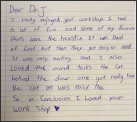 Dear Dr J
I really enjoyed your workshop I had
a lot of fun and some of my favourite
parts were the twister it was hard
at first but then they got easyer and
It was very exciting and I also
loved the middle suits the cat
behind the door one got really
the car on was easy too
So in conclusion I loved your
Work Shop ♥